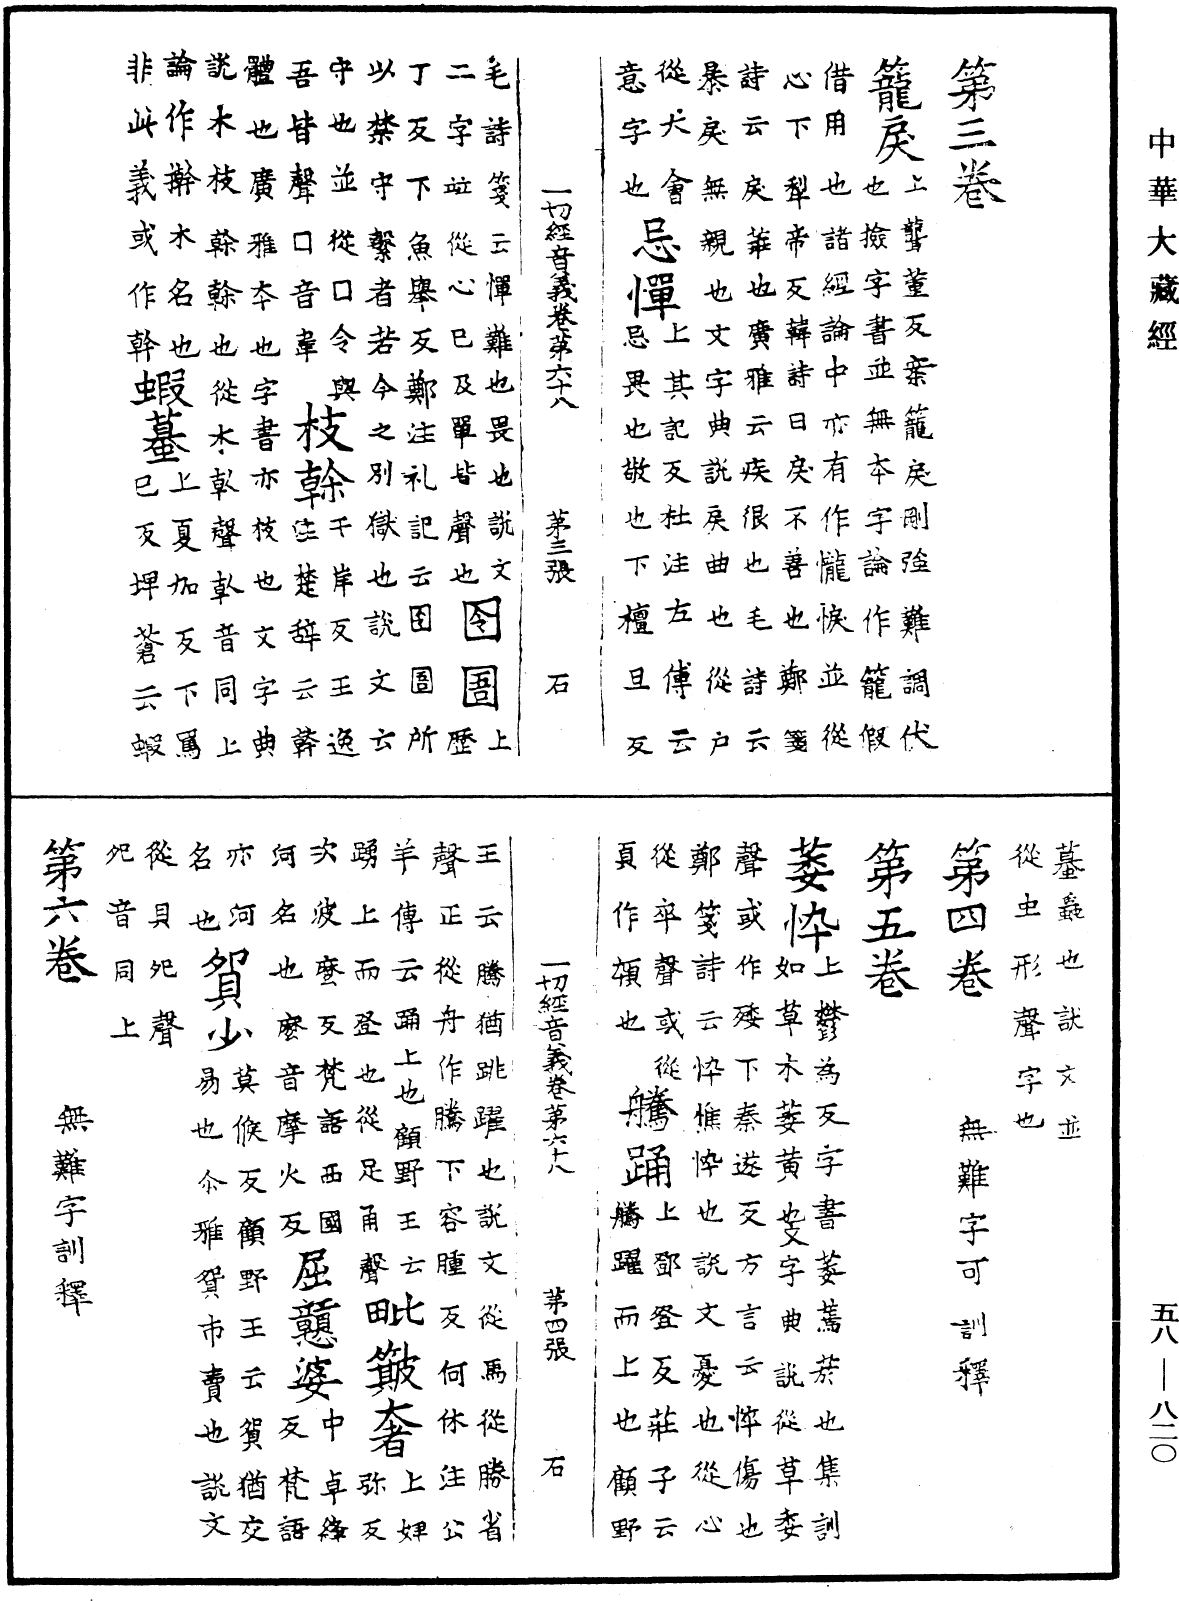 中華大藏經
第三卷
籠戾上聾董反案籠戾剛強難調伏
也撿字書並無本字論作籠假
借用也諸經論中亦有作㦕悷並從
心下犁帝反韓詩曰戾不善也鄭箋
詩云戾華也廣雅云疾很也毛詩云
暴戾無親也文字典說戾曲也從户
從犬會上其記反杜注左傳云
意字也忌憚忌畏也敬也下檀旦反
一切經音義卷第六十八 第三張 石
毛詩箋云憚難也畏也說文上
二字竝從心已及單皆聲也囹圄歷
丁反下魚舉反鄭注礼記云囹圄所
以禁守繫者若今之別獄也說文云
守也並從口令與枝榦干岸反王逸
吾皆聲口音韋注楚辞云榦
體也廣雅本也字書亦枝也文字典
說木枝榦榦也從木倝聲倝音同上
論作擀木名也上夏加反下罵
非此義或作幹蝦蟇巴反埤蒼云蝦
蟇蟲也説文並
從虫形聲字也
第四卷 無難字可訓釋
第五卷
萎悴上鬱為反字書萎蔫菸也集訓
如草木萎黄也文字典說從草委
聲或作矮下秦遂反方言云悴傷也
鄭箋詩云悴憔悴也說文憂也從心
從卒聲或從上鄧登反莊子云
頁作顇也騰踊騰躍而上也顧野
一切經音義卷第六十八 第四張 石
王云騰猶跳躍也說文從馬從勝省
聲正從舟作騰下容腫反何休注公
羊傳云踊上也顧野王云上婢
踴上而登也從足甬聲毗簸奢弥反
次波麼反梵語西國中卓絳
河名也麼音摩火反屈戇婆反梵語
亦河莫候反顧野王云貿猶交
名也貿少易也尒雅貿市賣也說文
從貝夗聲
夗音同上
第六卷 無難字訓釋
五八—八二〇